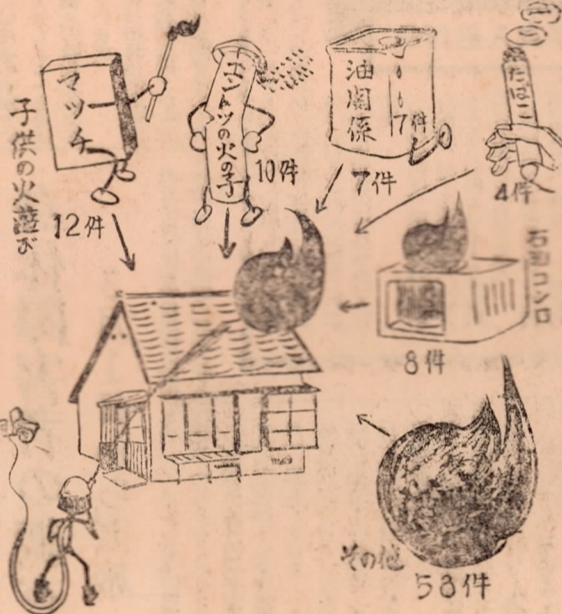 マッチ
子供の火遊び
12件
エントツの火の子
10件
油関係
7件
7件
たばこ
4件
石油コンロ
8件
その他
58件